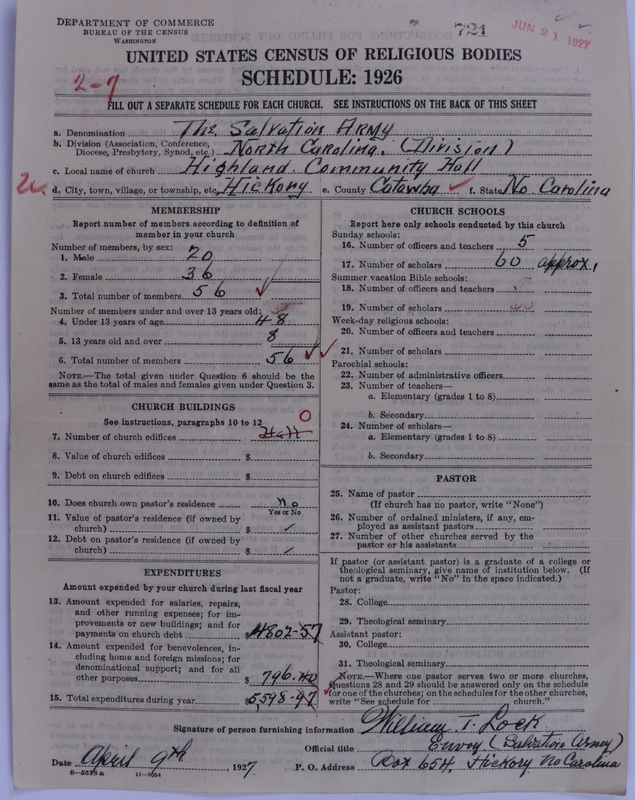 DEPARTMENT OF COMMERCE
BUREAU OF THE CENSUS
WASHINGTON
721
JUN 21 1927
UNITED STATES CENSUS OF RELIGIOUS BODIES
SCHEDULE: 1926
2-7
FILL OUT A SEPARATE SCHEDULE FOR EACH CHURCH. SEE INSTRUCTIONS ON THE BACK OF THIS SHEET
a. Denomination The Salvation Army
b. Division (Association, Conference, Diocese, Presbytery, Synod, etc.) North Carolina. (Division)
c. Local name of church Highland Community Hall
d. City, town, village, or township, etc. Hickory e. County Catawba f. State No Carolina
MEMBERSHIP
Report number of members according to definition of
member in your church
Number of members, by sex:
1. Male 20
2. Female 36
3. Total number of members 56
Number of members under and over 13 years old:
4. Under 13 years of age 48
5. 13 years old and over 8
6. Total number of members 56
NOTE.—The total given under Question 6 should be
same as the total of males and females given under Question 3.
CHURCH BUILDINGS
See instructions, paragraphs 10 to 12
7. Number of church edifices Hall 0
8. Value of church edifices $
9. Debt on church edifices $
10. Does church own pastor's residence No
Yes or No
11. Value of pastor's residence (if owned by
church) $
12. Debt on pastor's residence (if owned by
church) $
EXPENDITURES
Amount expended by your church during last fiscal year
13. Amount expended for salaries, repairs,
and other running expenses; for im-
provements or new buildings; and for
payments on church debt $4802-57
14. Amount expended for benevolences, in-
cluding home and foreign missions; for
denominational support; and for all
other purposes $ 796.40
15. Total expenditures during year $5,598-97
CHURCH SCHOOLS
Report here only schools conducted by this church
Sunday schools:
16. Number of officers and teachers 5
17. Number of scholars 60 approx.
Summer vacation Bible schools:
18. Number of officers and teachers 5
19. Number of scholars 60
Week-day religious schools:
20. Number of officers and teachers
21. Number of scholars
Parochial schools:
22. Number of administrative officers
23. Number of teachers—
a. Elementary (grades 1 to 8)
b. Secondary
24. Number of scholars—
a. Elementary (grades 1 to 8)
b. Secondary
PASTOR
25. Name of pastor
(If church has no pastor, write "None")
26. Number of ordained ministers, if any, em-
ployed as assistant pastors
27. Number of other churches served by the
pastor or his assistants
If pastor (or assistant pastor) is a graduate of a college or
theological seminary, give name of institution below. (If
not a graduate, write "No" in the space indicated.)
Pastor:
28. College
29. Theological seminary
Assistant pastor:
30. College
31. Theological seminary
NOTE.—Where one pastor serves two or more churches,
Questions 28 and 29 should be answered only on the schedule
for one of the churches; on the schedules for the other churches,
write "See schedule for church."
Signature of person furnishing information William T. Lock
Official title Envoy (Salvation Army)
Date April 9th, 1927 P. O. Address Box 654, Hickory No Carolina
8-5518a 11-9054